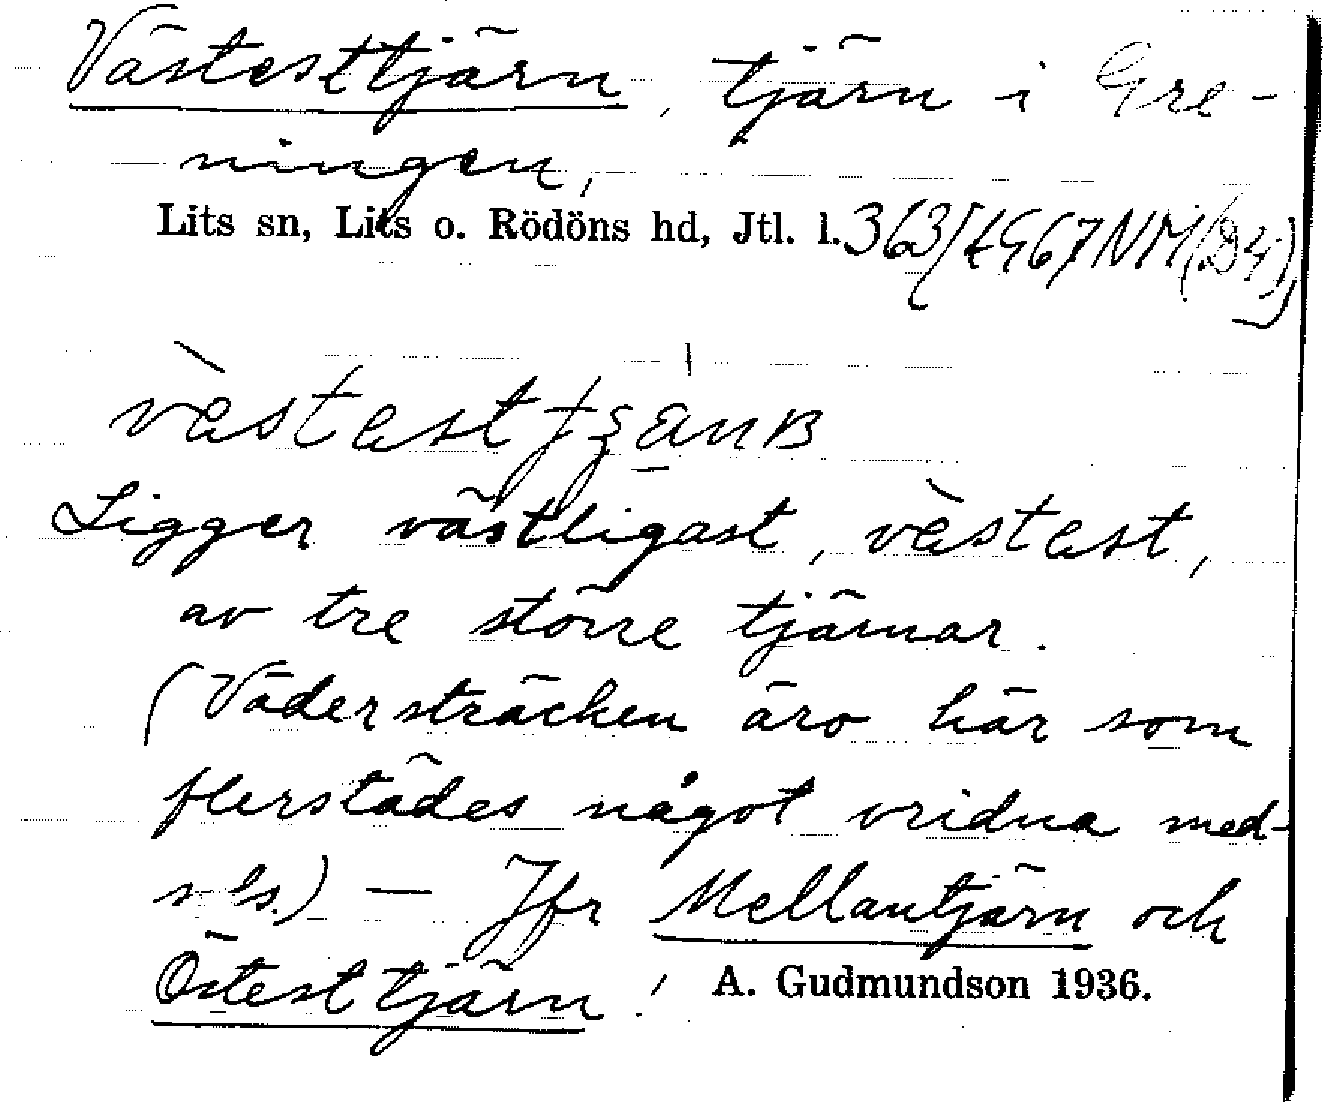 Västesttjärn, tjärn i Gre-
ningen,
Lits sn, Lits o. Rödöns hd, Jtl. l.
västast
Ligger västligast, västast,
av tre större tjärnar.
(Väderstrecken äro här som
flerstädes något vridna med-
sols.) — Jfr Mellantjärn och
Östesttjärn. A. Gudmundson 1936.